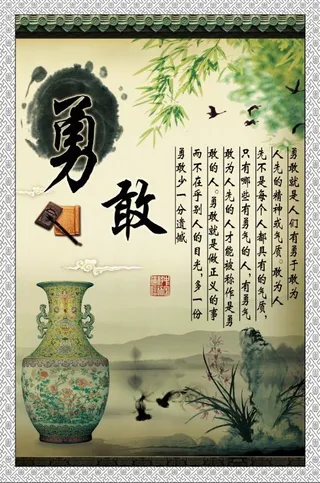 勇敢
勇敢就是人们有勇于敢为
人先的精神或气质。敢为人
先不是每个人都具有的气质,
只有哪些有勇气的人,有勇气
敢为人先的人才能被称作是勇
敢的人。勇敢就是做正义的事
而不在乎别人的目光,多一份
勇敢少一分遗憾